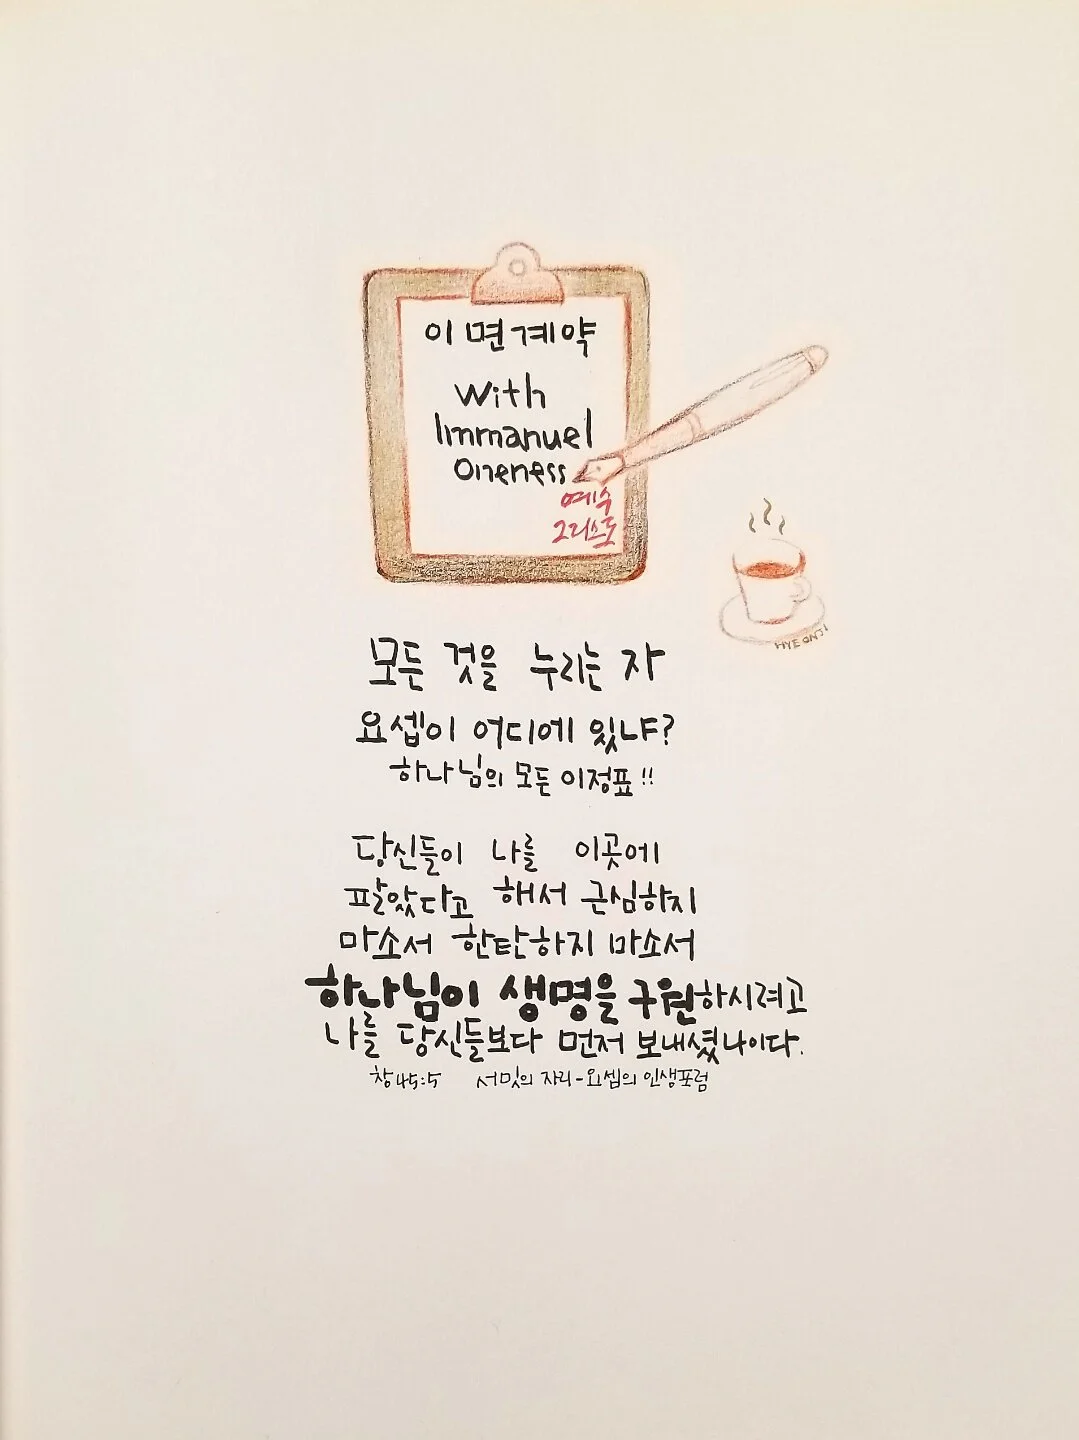 이면계약
With
Immanuel
Oneness
예수
그리스도
HYEONJI
모든 것을 누리는 자
요셉이 어디에 있냐?
하나님의 모든 이정표!!
당신들이 나를 이곳에
팔았다고 해서 근심하지
마소서 한탄하지 마소서
하나님이 생명을 구원하시려고
나를 당신들보다 먼저 보내셨나이다.
창45:5 서밋의 자리-요셉의 인생포럼